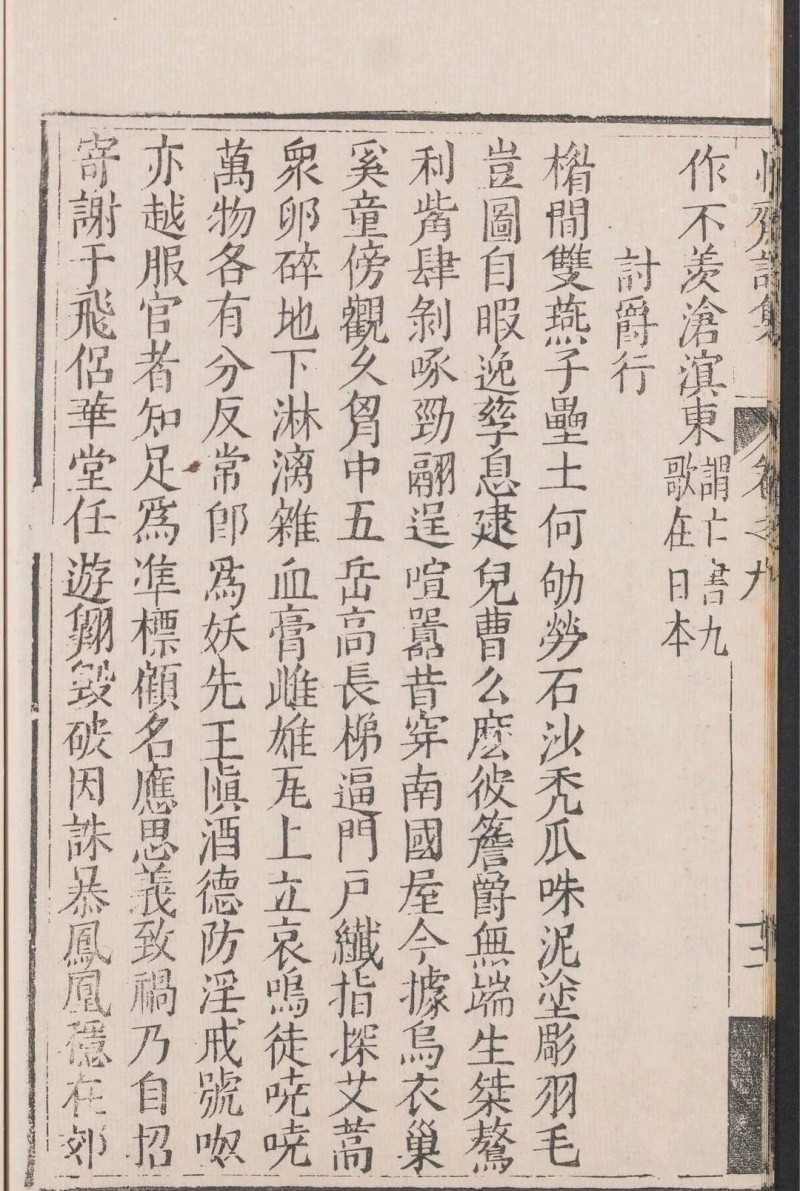 齋詩集 卷之九 十二
作不羨滄溟東 謂亡書九歌在日本
討爵行
楣間雙燕子壘土何劬勞石沙禿爪咮泥塗彫羽毛
豈圖自暇逸孳息建兒曹么麽彼簷爵無端生桀驁
利觜肆剝啄勁翮逞喧囂昔穿南國屋今據烏衣巢
奚童傍觀久胷中五岳高長梯逼門戶纖指探艾蒿
衆卵碎地下淋漓雜血膏雌雄瓦上立哀鳴徒哓哓
萬物各有分反常卽爲妖先王愼酒德防淫戒號呶
亦越服官者知足爲準標顧名應思義致禍乃自招
寄謝于飛侶華堂任遊翱毀破因誅暴鳳凰穩在郊